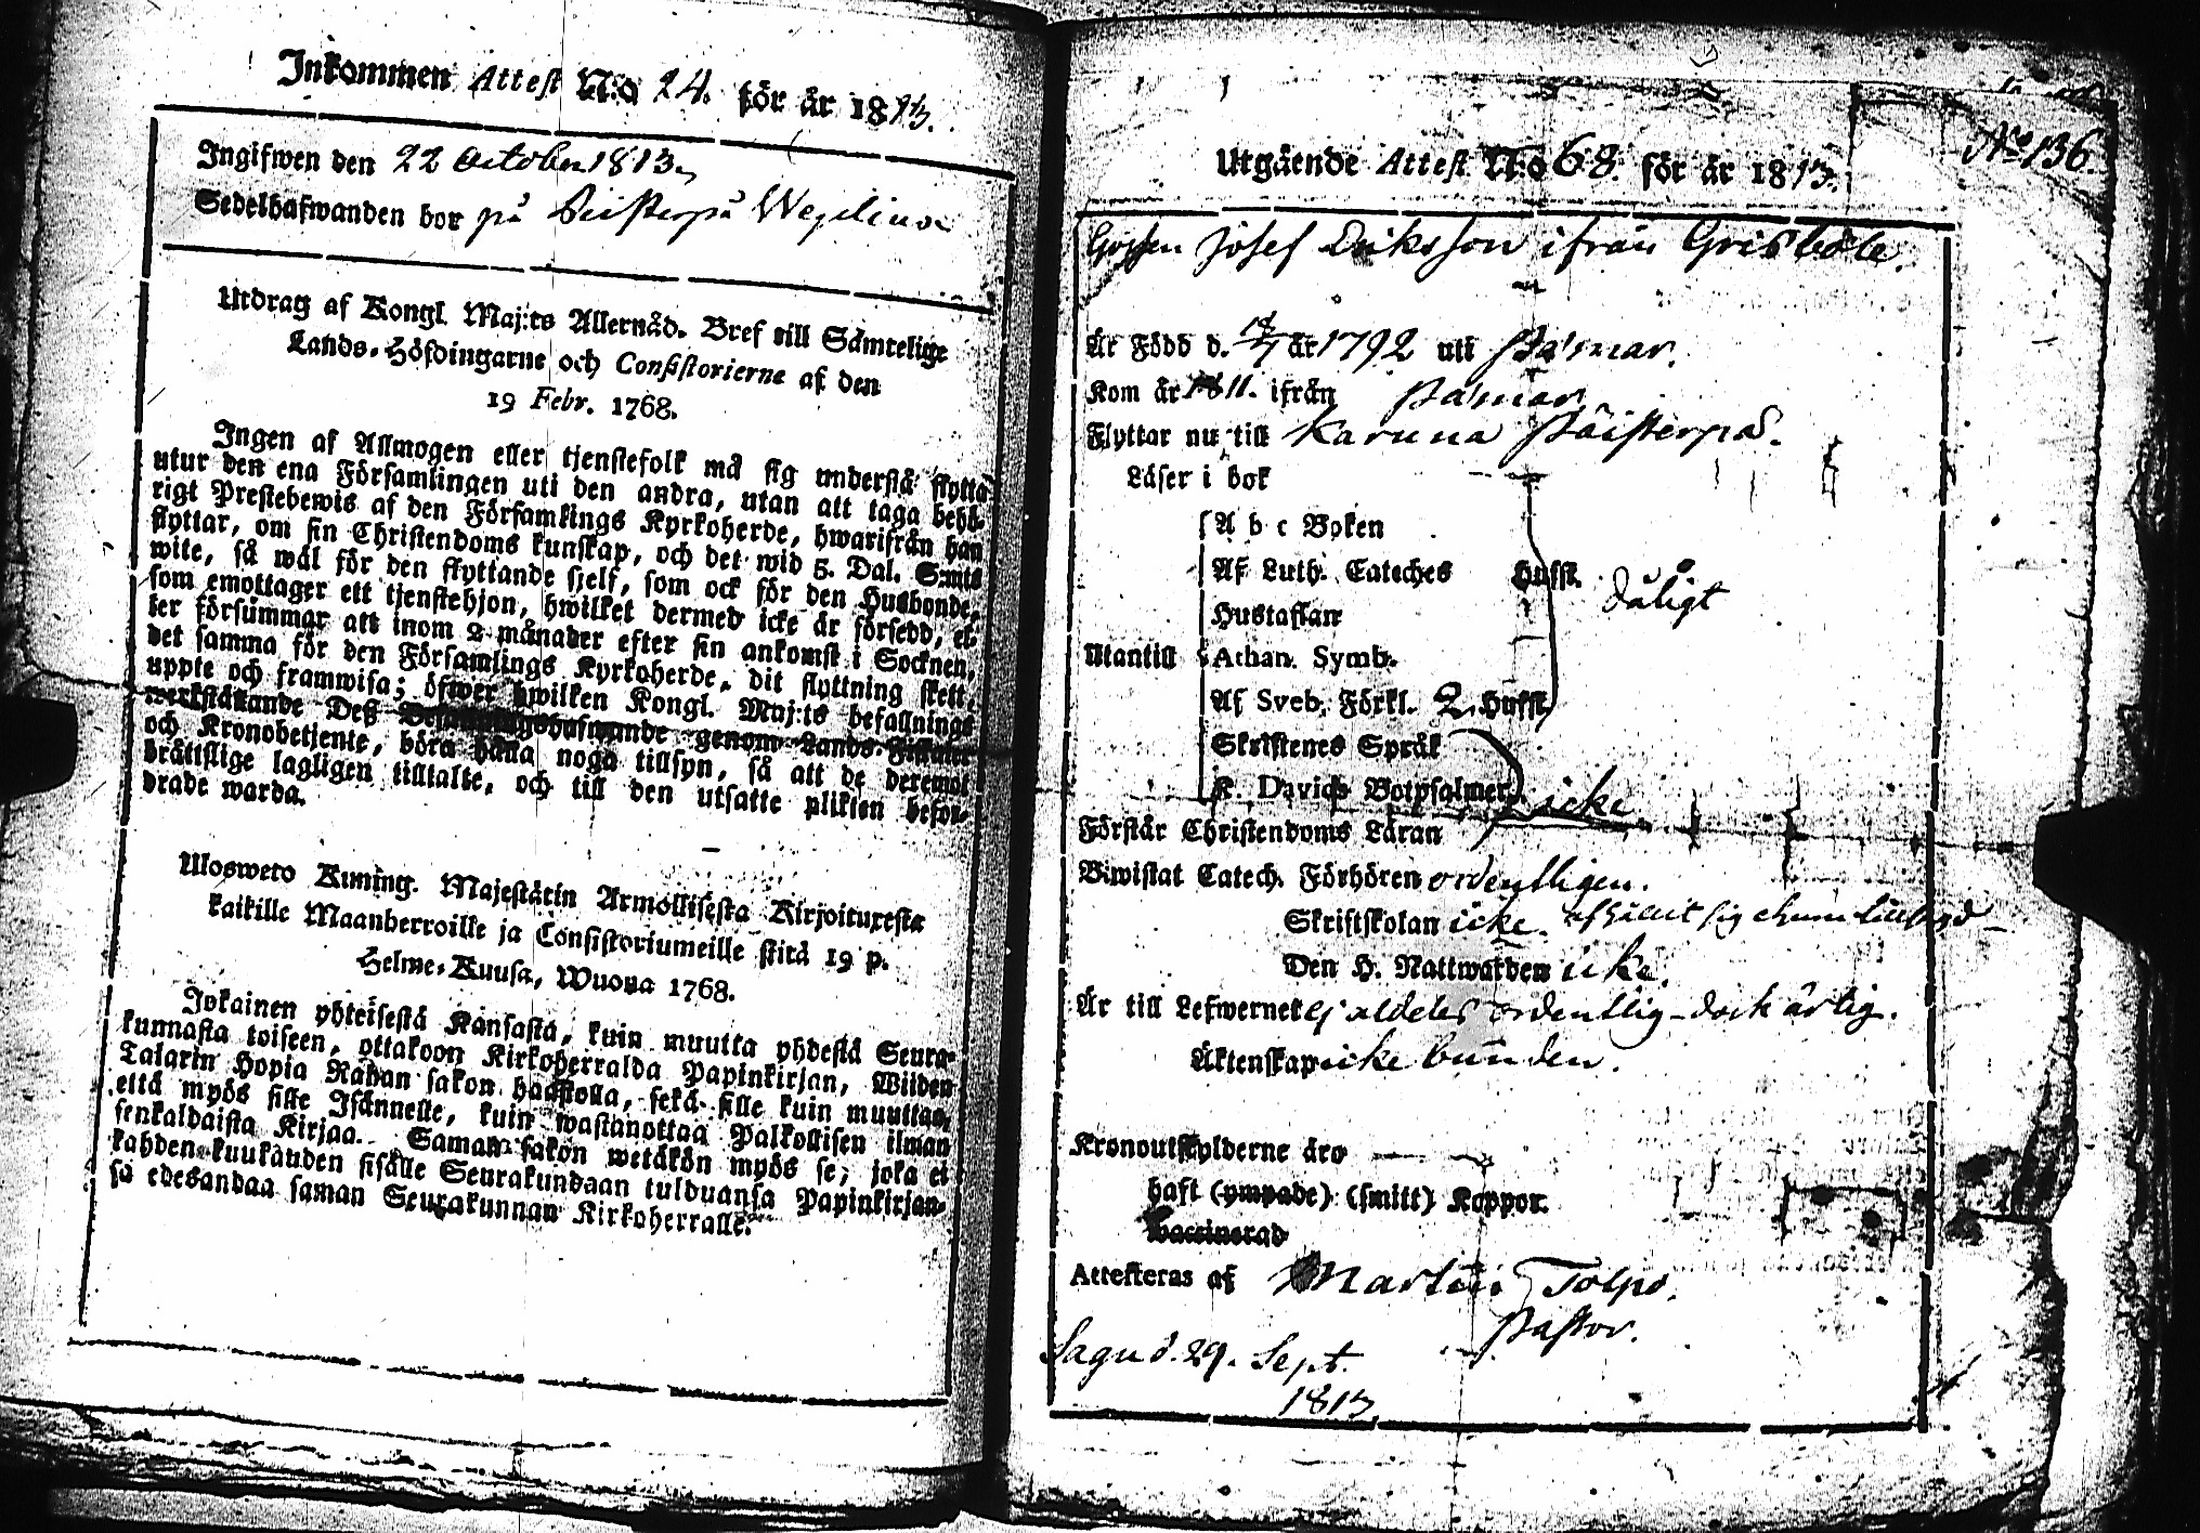 Inkommen Attest N:o 24. för år 1813.
Ingifwen den 22 October 1813.
Sedelhafwanden bor på
Utdrag af Kongl. Maj:ts Allernåd. Bref till Samtelige
Lands-Höfdingarne och Consistorierne af den
19 Febr. 1768.
Ingen af Allmogen eller tjenstefolk må sig understå flytta
utur den ena Församlingen uti den andra, utan att taga behö-
rigt Prestebewis af den Församlings Kyrkoherde, hwarifrån han
flyttar, om sin Christendoms kunskap, och det wid 5. Dal. S:mts
wite, så wäl för den flyttande sjelf, som ock för den Husbonde,
som emottager ett tjenstehjon, hwilket dermed icke är försedd, el-
ler försummar att inom 2 månader efter sin ankomst i Socknen,
det samma för den Församlings Kyrkoherde, dit flyttning skett,
uppte och framwisa; öfwer hwilken Kongl. Maj:ts befallnings
werkställande Deß Befallningshafwande genom Lands-Fiskaler
och Kronobetjente, böra hålla noga tillsyn, så att de deremot
brättslige lagligen tilltalte, och till den utsatte plikten befor-
drade warda.
Ulosweto Kuning. Majestätin Armollisesta Kirjoituxesta
kaikille Maanherroille ja Consistoriumeille siitä 19 p.
Helme-Kuusa, Wuona 1768.
Jokainen yhteisestä Kansasta, kuin muutta yhdestä Seura-
kunnasta toiseen, ottakoon Kirkoherralda Papinkirjan, Wiiden
Talarin Hopia Rahan sakon haastolla, sekä sille kuin muuttaa,
että myös sille Isännelle, kuin wastanottaa Palkollisen ilman
senkaldaista Kirjaa. Saman sakon wetäkön myös se, joka ei
kahden kuukauden sisälle Seurakundaan tulduansa Papinkirjan-
sa edesandaa saman Seurakunnan Kirkoherralle.
No 136.
Utgående Attest N:o 68. för år 1813.
Gossen Josef Eriksson ifrån Grisböle.
Är Född d. 18/7 år 1792 uti Påmar.
Kom år 1811. ifrån Påmar
Flyttar nu till Karuna Päisterpå.
Läser i bok
A b c Boken
Af Luth. Cateches Hufst. dåligt
Hustaflan
Utantill Athan. Symb.
Af Sveb. Förkl. 2 Hufst.
Skriftenes Språk
K. Davids Botpsalmer icke
Förstår Christendoms Läran
Biwistat Catech. Förhören ordentligen.
Skriftskolan icke.
Den H. Nattwarden icke.
Är till Lefwernet ej aldeles ordentlig - dock ärlig.
Äktenskap icke bunden.
Kronoutskylderne äro
haft (ympade) (smitt) Koppor.
Vaccinerad
Attesteras af Martin Tolpo.
Pastor.
Sagu d. 29. Sept.
1813